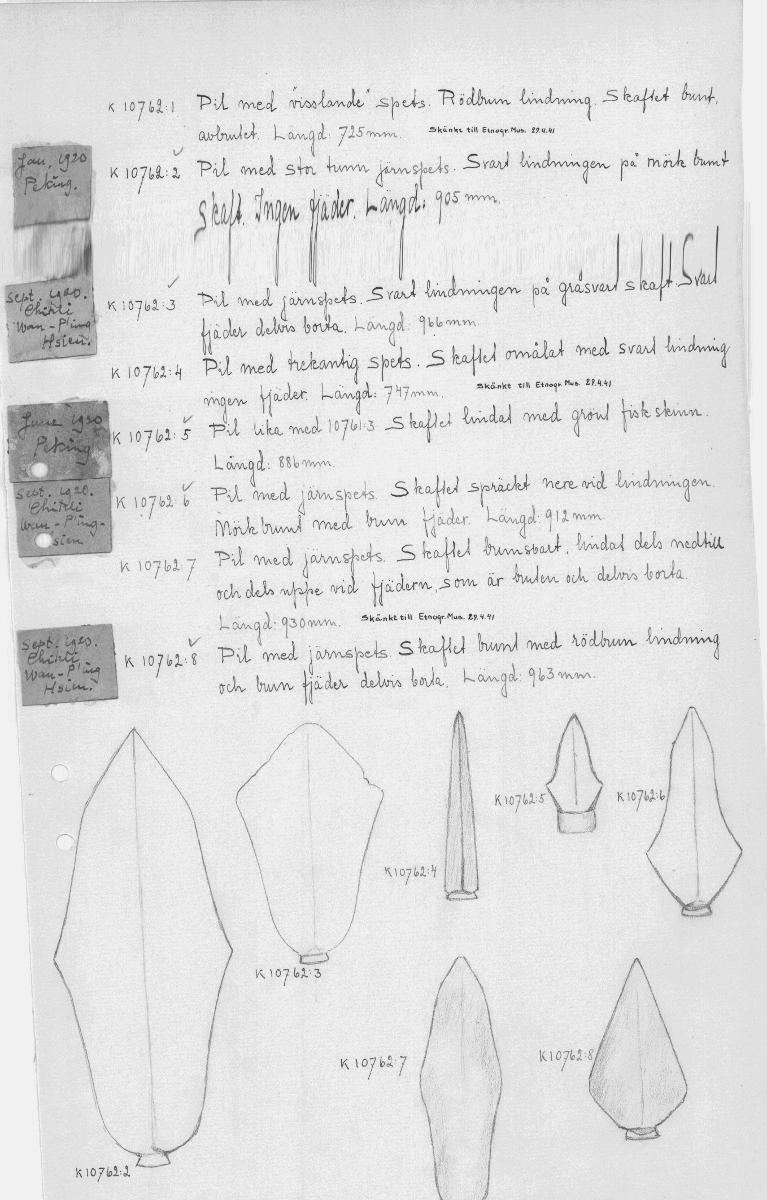 K 10762:1 Pil med "visslande" spets. Rödbrun lindning. Skaftet brunt,
avbrutet. Längd: 725 mm. Skänkt till Etnogr. Mus. 29.4.41
Jan. 1920
Peking.
K 10762:2 Pil med stor tunn järnspets. Svart lindningen på mörk brunt
skaft. Ingen fjäder. Längd: 905 mm.
Sept. 1920.
Chihli
Wan-P'ing
Hsien.
K 10762:3 Pil med järnspets. Svart lindningen på gråsvart skaft. Svart
fjäder delvis borta. Längd: 966 mm.
K 10762:4 Pil med trekantig spets. Skaftet omålat med svart lindning
ingen fjäder. Längd: 747 mm. Skänkt till Etnogr. Mus. 29.4.41
June 1920
Peking
K 10762:5 Pil lika med 10761:3 Skaftet lindat med grönt fiskskinn.
Längd: 886 mm.
Sept. 1920.
Chihli
Wan-P'ing-
sien
K 10762:6 Pil med järnspets. Skaftet spräckt nere vid lindningen.
Mörkbrunt med brun fjäder. Längd: 912 mm.
K 10762:7 Pil med järnspets. Skaftet brunsvart, lindat dels nedtill
och dels uppe vid fjädern, som är bruten och delvis borta.
Längd: 930 mm. Skänkt till Etnogr. Mus. 29.4.41
Sept. 1920.
Chihli,
Wan-P'ing
Hsien.
K 10762:8 Pil med järnspets. Skaftet brunt med rödbrun lindning
och brun fjäder delvis borta. Längd: 963 mm.
K 10762:5
K 10762:6
K 10762:4
K 10762:3
K 10762:7
K 10762:8
K 10762:2